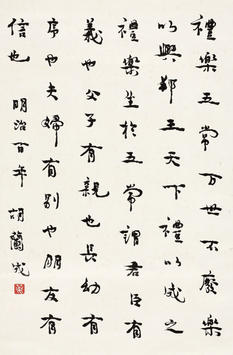 禮樂五常万世不廢樂
以興王天下禮以成之
禮樂生於五常謂君臣有
義也父子有親也長幼有
序也夫婦有別也朋友有
信也 明治百年 胡蘭成